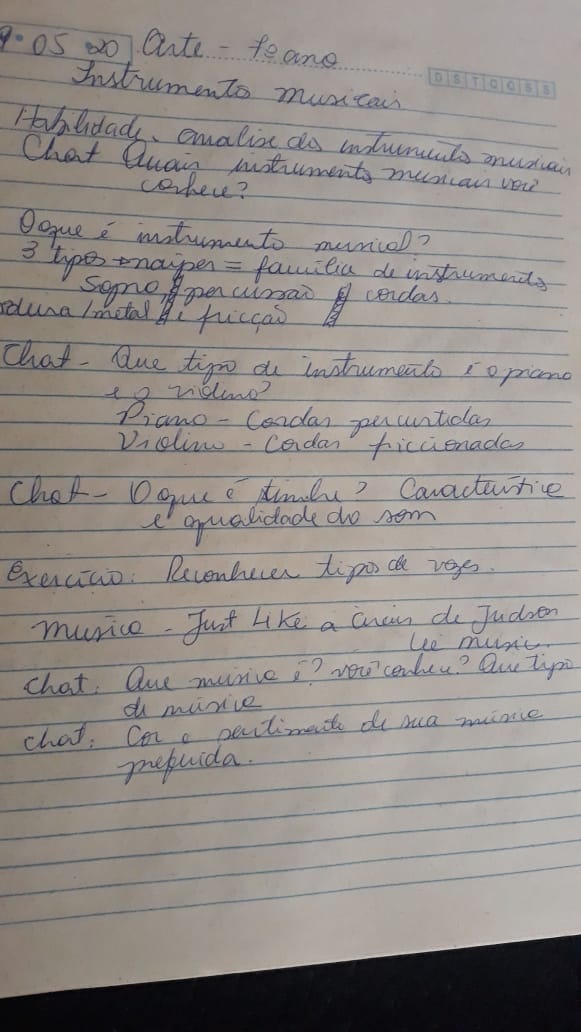 9.05 20 Arte - 7º ano
D S T Q Q S S
Instrumento musicais
Habilidade. analise do instrumento musicais
Chat Quais instrumento musicais você
conhece?
Oque é instrumento musical?
3 tipos naipes = família de instrumento
Sopro, percussão e cordas.
madeira/metal e fricção
Chat - Que tipo de instrumento é o piano
e o violino?
Piano - Cordas percurtidas
Violino - Cordas ficcionadas
Chat - O que é timbre? Caracteristica
e qualidade do som
Exercício: Reconhecer tipos de vozes.
Musica - Just Like a de Judson
Lee music.
Chat: Que musica é? você conhece? Que tipo
de música
Chat: Cor e sentimento de sua música
prefuida.